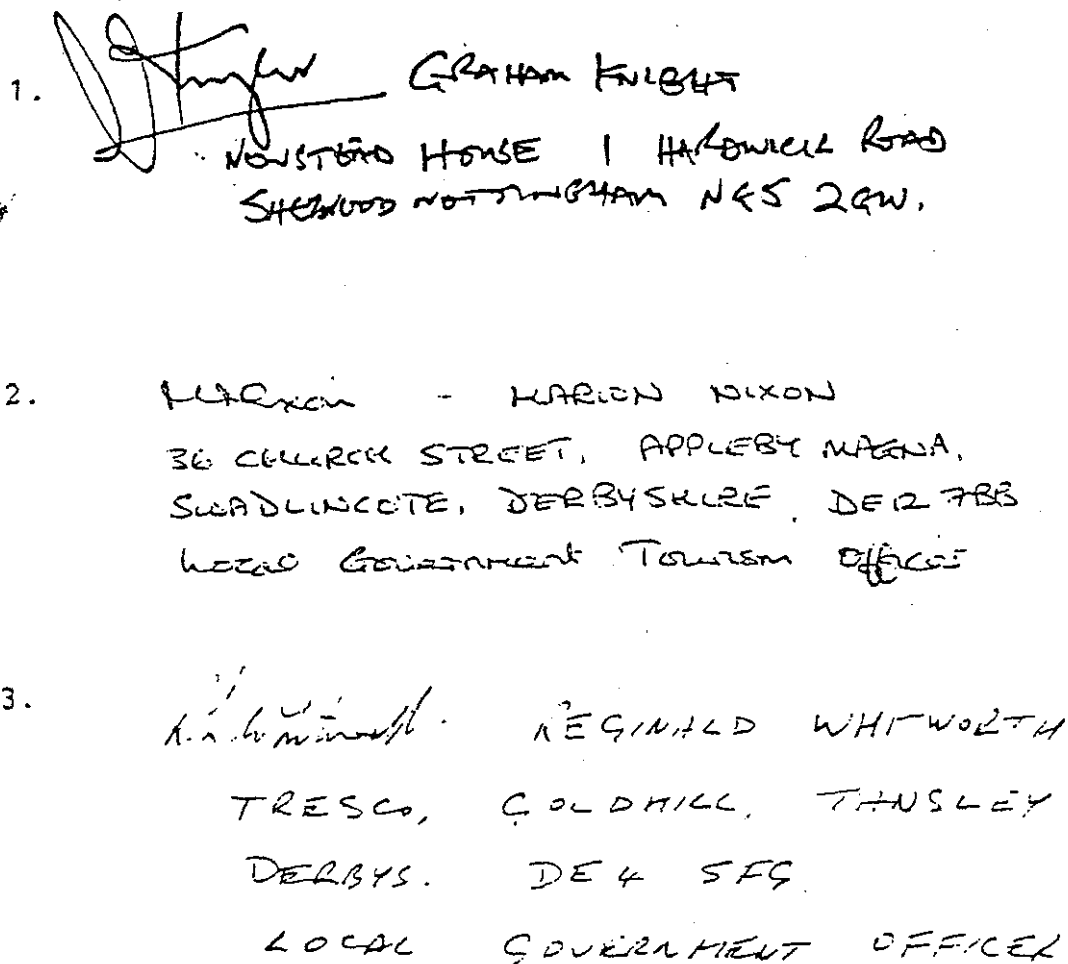 1. GRAHAM KNIGHT
NEWSTEAD HOUSE 1 HARDWICK ROAD
SHERWOOD NOTTINGHAM NG5 2GW.
2. - MARION NIXON
36 CHURCH STREET, APPLEBY MAGNA,
SWADLINCOTE, DERBYSHIRE. DE12 7BB
Local Government Tourism Officer
3. REGINALD WHITWORTH
TRESCO, GOLDHILL, TANSLEY
DERBYS. DE4 5FG
LOCAL GOVERNMENT OFFICER